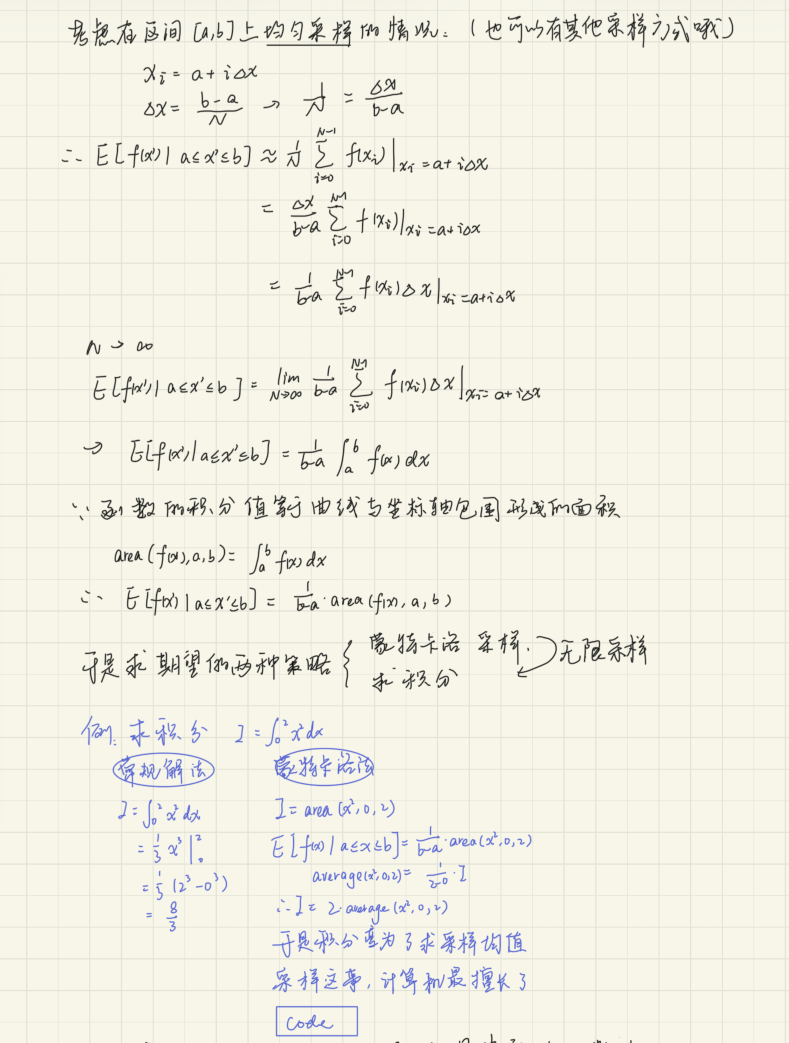 考虑在区间 [a,b] 上均匀采样的情况. (也可以有其他采样方式哦)
x_i = a + iΔx
Δx = (b-a)/N → 1/N = Δx/(b-a)
∴ E[f(x') | a≤x'≤b] ≈ 1/N ∑_{i=0}^{N-1} f(x_i) |_{x_i = a+iΔx}
= Δx/(b-a) ∑_{i=0}^{N-1} f(x_i) |_{x_i = a+iΔx}
= 1/(b-a) ∑_{i=0}^{N-1} f(x_i) Δx |_{x_i = a+iΔx}
N → ∞
E[f(x') | a≤x'≤b] = lim_{N→∞} 1/(b-a) ∑_{i=0}^{N-1} f(x_i) Δx |_{x_i = a+iΔx}
→ E[f(x') | a≤x'≤b] = 1/(b-a) ∫_a^b f(x) dx
∵ 函数的积分值等于曲线与坐标轴包围形成的面积
area(f(x), a, b) = ∫_a^b f(x) dx
∴ E[f(x') | a≤x'≤b] = 1/(b-a) · area(f(x), a, b)
于是求期望的两种策略 { 蒙特卡洛 采样. 无限采样
求积分
例: 求积分 I = ∫_0^2 x² dx
常规解法
I = ∫_0^2 x² dx
= 1/3 x³ |_0^2
= 1/3 (2³ - 0³)
= 8/3
蒙特卡洛法
I = area(x², 0, 2)
E[f(x) | a≤x≤b] = 1/(b-a) · area(x², 0, 2)
average(x², 0, 2) = 1/(2-0) · I
∴ I = 2·average(x², 0, 2)
于是积分变为了求采样均值
采样这事, 计算机最擅长了
code